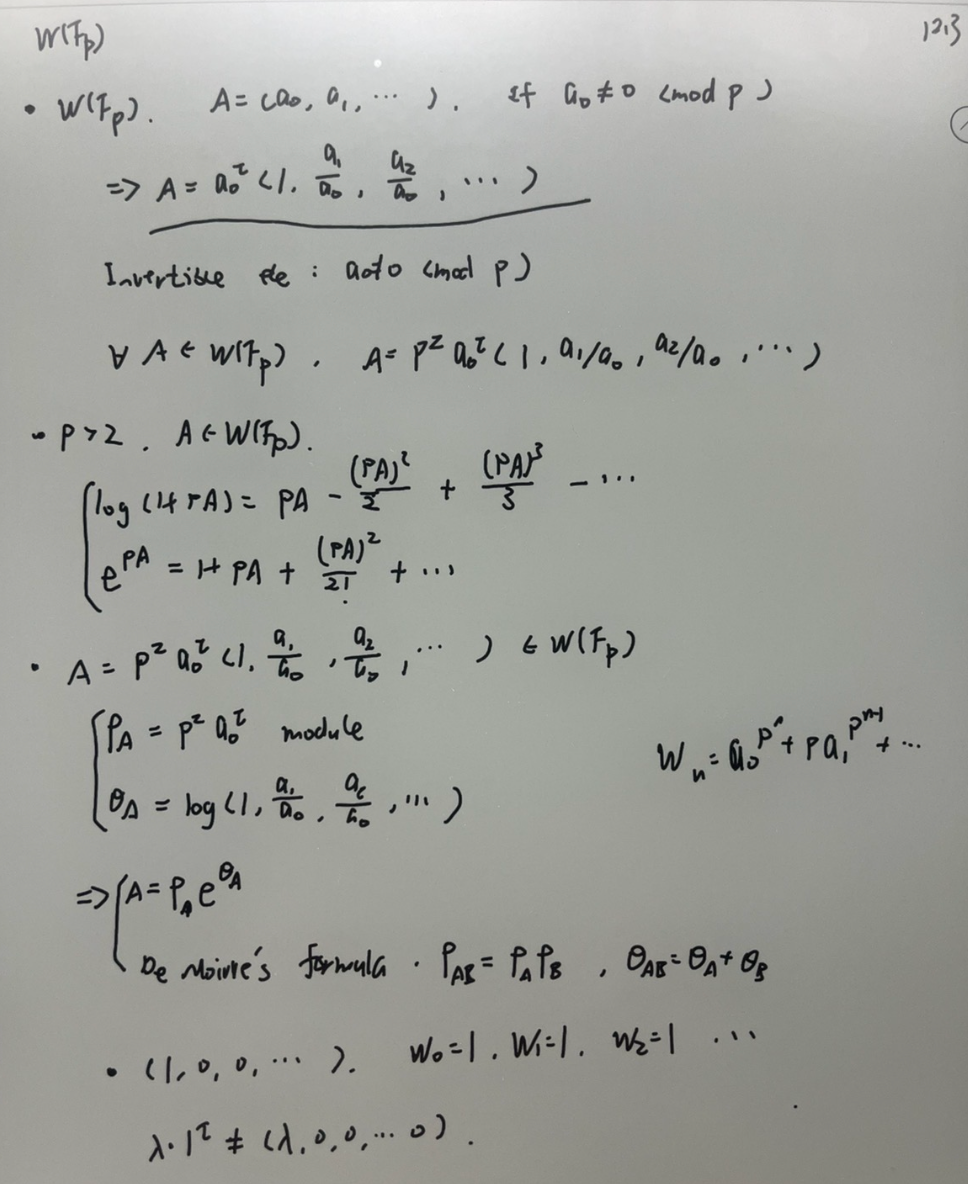 W(Fp)
123
• W(Fp). A = (a₀, a₁, ⋯ ). If a₀ ≠ 0 (mod p)
=> A = a₀^τ (1, a₁/a₀, a₂/a₀, ⋯ )
Invertible ele : a₀≠0 (mod p)
∀ A ∈ W(Fp), A = p^z a₀^τ (1, a₁/a₀, a₂/a₀, ⋯ )
• p > 2, A ∈ W(Fp).
log (1+pA) = pA - (pA)²/2 + (pA)³/3 - ⋯
e^{pA} = 1+ pA + (pA)²/2! + ⋯
• A = p^z a₀^τ (1, a₁/a₀, a₂/a₀, ⋯ ) ∈ W(Fp)
ρ_A = p^z a₀^τ module
W_n = a₀^{p^n} + p a₁^{p^{n-1}} + ⋯
θ_A = log (1, a₁/a₀, a₂/a₀, ⋯ )
=> A = ρ_A e^{θ_A}
De Moivre's formula . ρ_AB = ρ_A ρ_B , θ_AB = θ_A + θ_B
• (1, 0, 0, ⋯ ). W₀=1, W₁=1, W₂=1 ⋯
λ·1^τ ≠ (λ, 0, 0, ⋯ 0) .